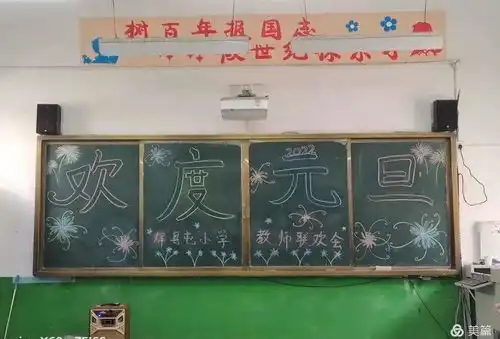 树百年报国志
世纪
2022
欢度元旦
县屯小学 教师联欢会
美篇